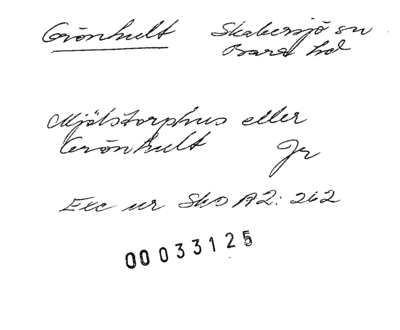 Grönhult Skabersjö sn
Bara hd
Mjölstorphus eller
Grönhult Jr
Exc ur SkO A2: 262
00033125